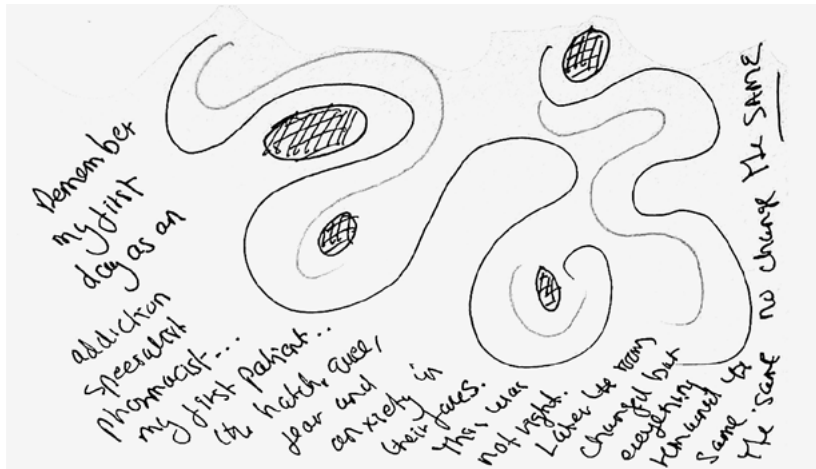 Remember
my first
day as an
addiction
specialist
pharmacist...
my first patient...
the hatch, queue,
fear and
anxiety in
their faces.
This was
not right.
Later the room
changed but
everything
remained the
same.
the same no change the SAME